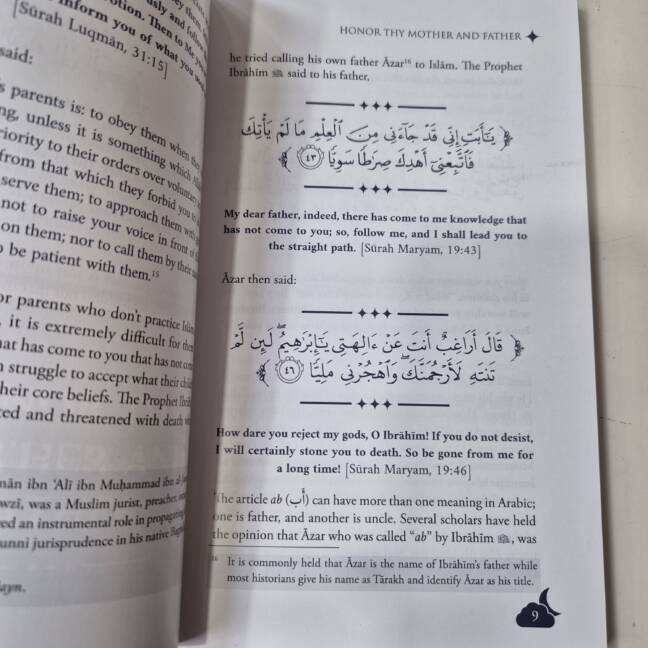 inform you of what you
[Sūrah Luqmān, 31:15]
said:
parents is: to obey them when they
unless it is something which
priority to their orders over voluntary
from that which they forbid you
serve them; to approach them with
not to raise your voice in front of
on them; nor to call them by their
be patient with them.¹⁵
or parents who don't practice Islām
, it is extremely difficult for them
has come to you that has not come
struggle to accept what their
their core beliefs. The Prophet
and threatened with death
ibn 'Alī ibn Muḥammad ibn
was a Muslim jurist, preacher,
an instrumental role in propagating
jurisprudence in his native
HONOR THY MOTHER AND FATHER
he tried calling his own father Āzar¹⁶ to Islām. The Prophet
Ibrāhīm ﷺ said to his father,
يَٰٓأَبَتِ إِنِّي قَدْ جَآءَنِي مِنَ ٱلْعِلْمِ مَا لَمْ يَأْتِكَ
فَٱتَّبِعْنِيٓ أَهْدِكَ صِرَٰطًا سَوِيًّا ٤٣
My dear father, indeed, there has come to me knowledge that
has not come to you; so, follow me, and I shall lead you to
the straight path. [Sūrah Maryam, 19:43]
Āzar then said:
قَالَ أَرَاغِبٌ أَنتَ عَنْ ءَالِهَتِي يَٰٓإِبْرَٰهِيمُ ۖ لَئِن لَّمْ
تَنتَهِ لَأَرْجُمَنَّكَ ۖ وَٱهْجُرْنِي مَلِيًّا ٤٦
How dare you reject my gods, O Ibrāhīm! If you do not desist,
I will certainly stone you to death. So be gone from me for
a long time! [Sūrah Maryam, 19:46]
The article ab (أَب) can have more than one meaning in Arabic;
one is father, and another is uncle. Several scholars have held
the opinion that Āzar who was called "ab" by Ibrāhīm ﷺ, was
¹⁶ It is commonly held that Āzar is the name of Ibrāhīm's father while
most historians give his name as Tārakh and identify Āzar as his title.
9